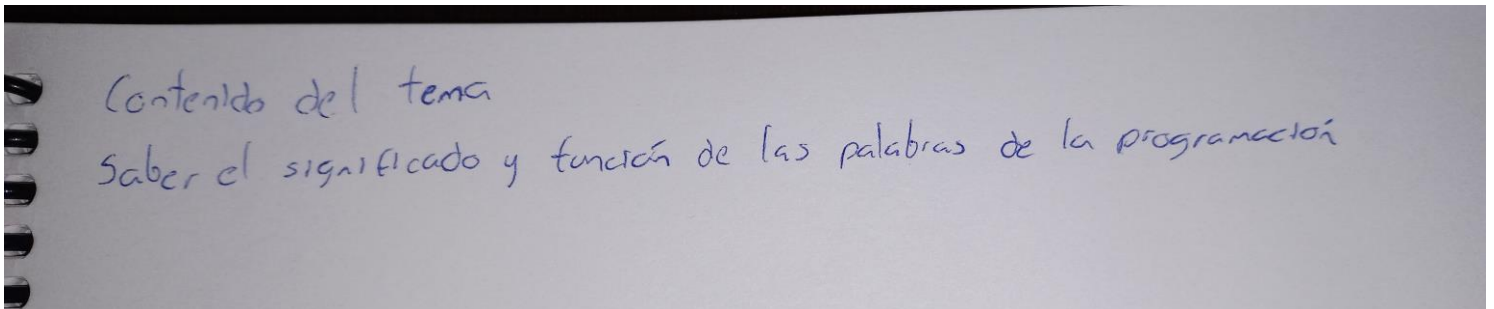 Contenido del tema
Saber el significado y función de las palabras de la programación